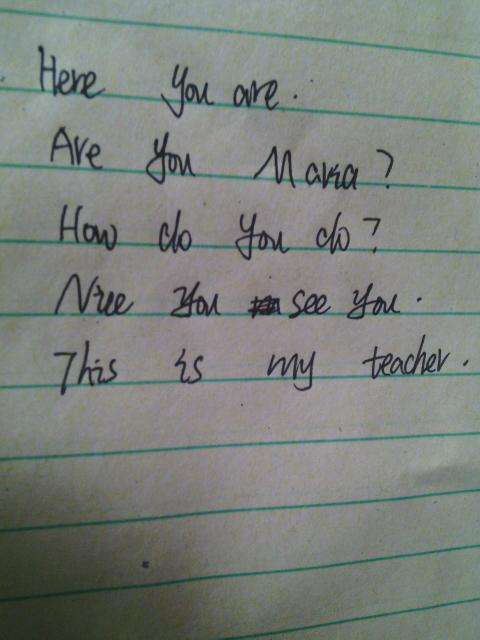 Here you are.
Are you Maria?
How do you do?
Nice you see you.
This is my teacher.